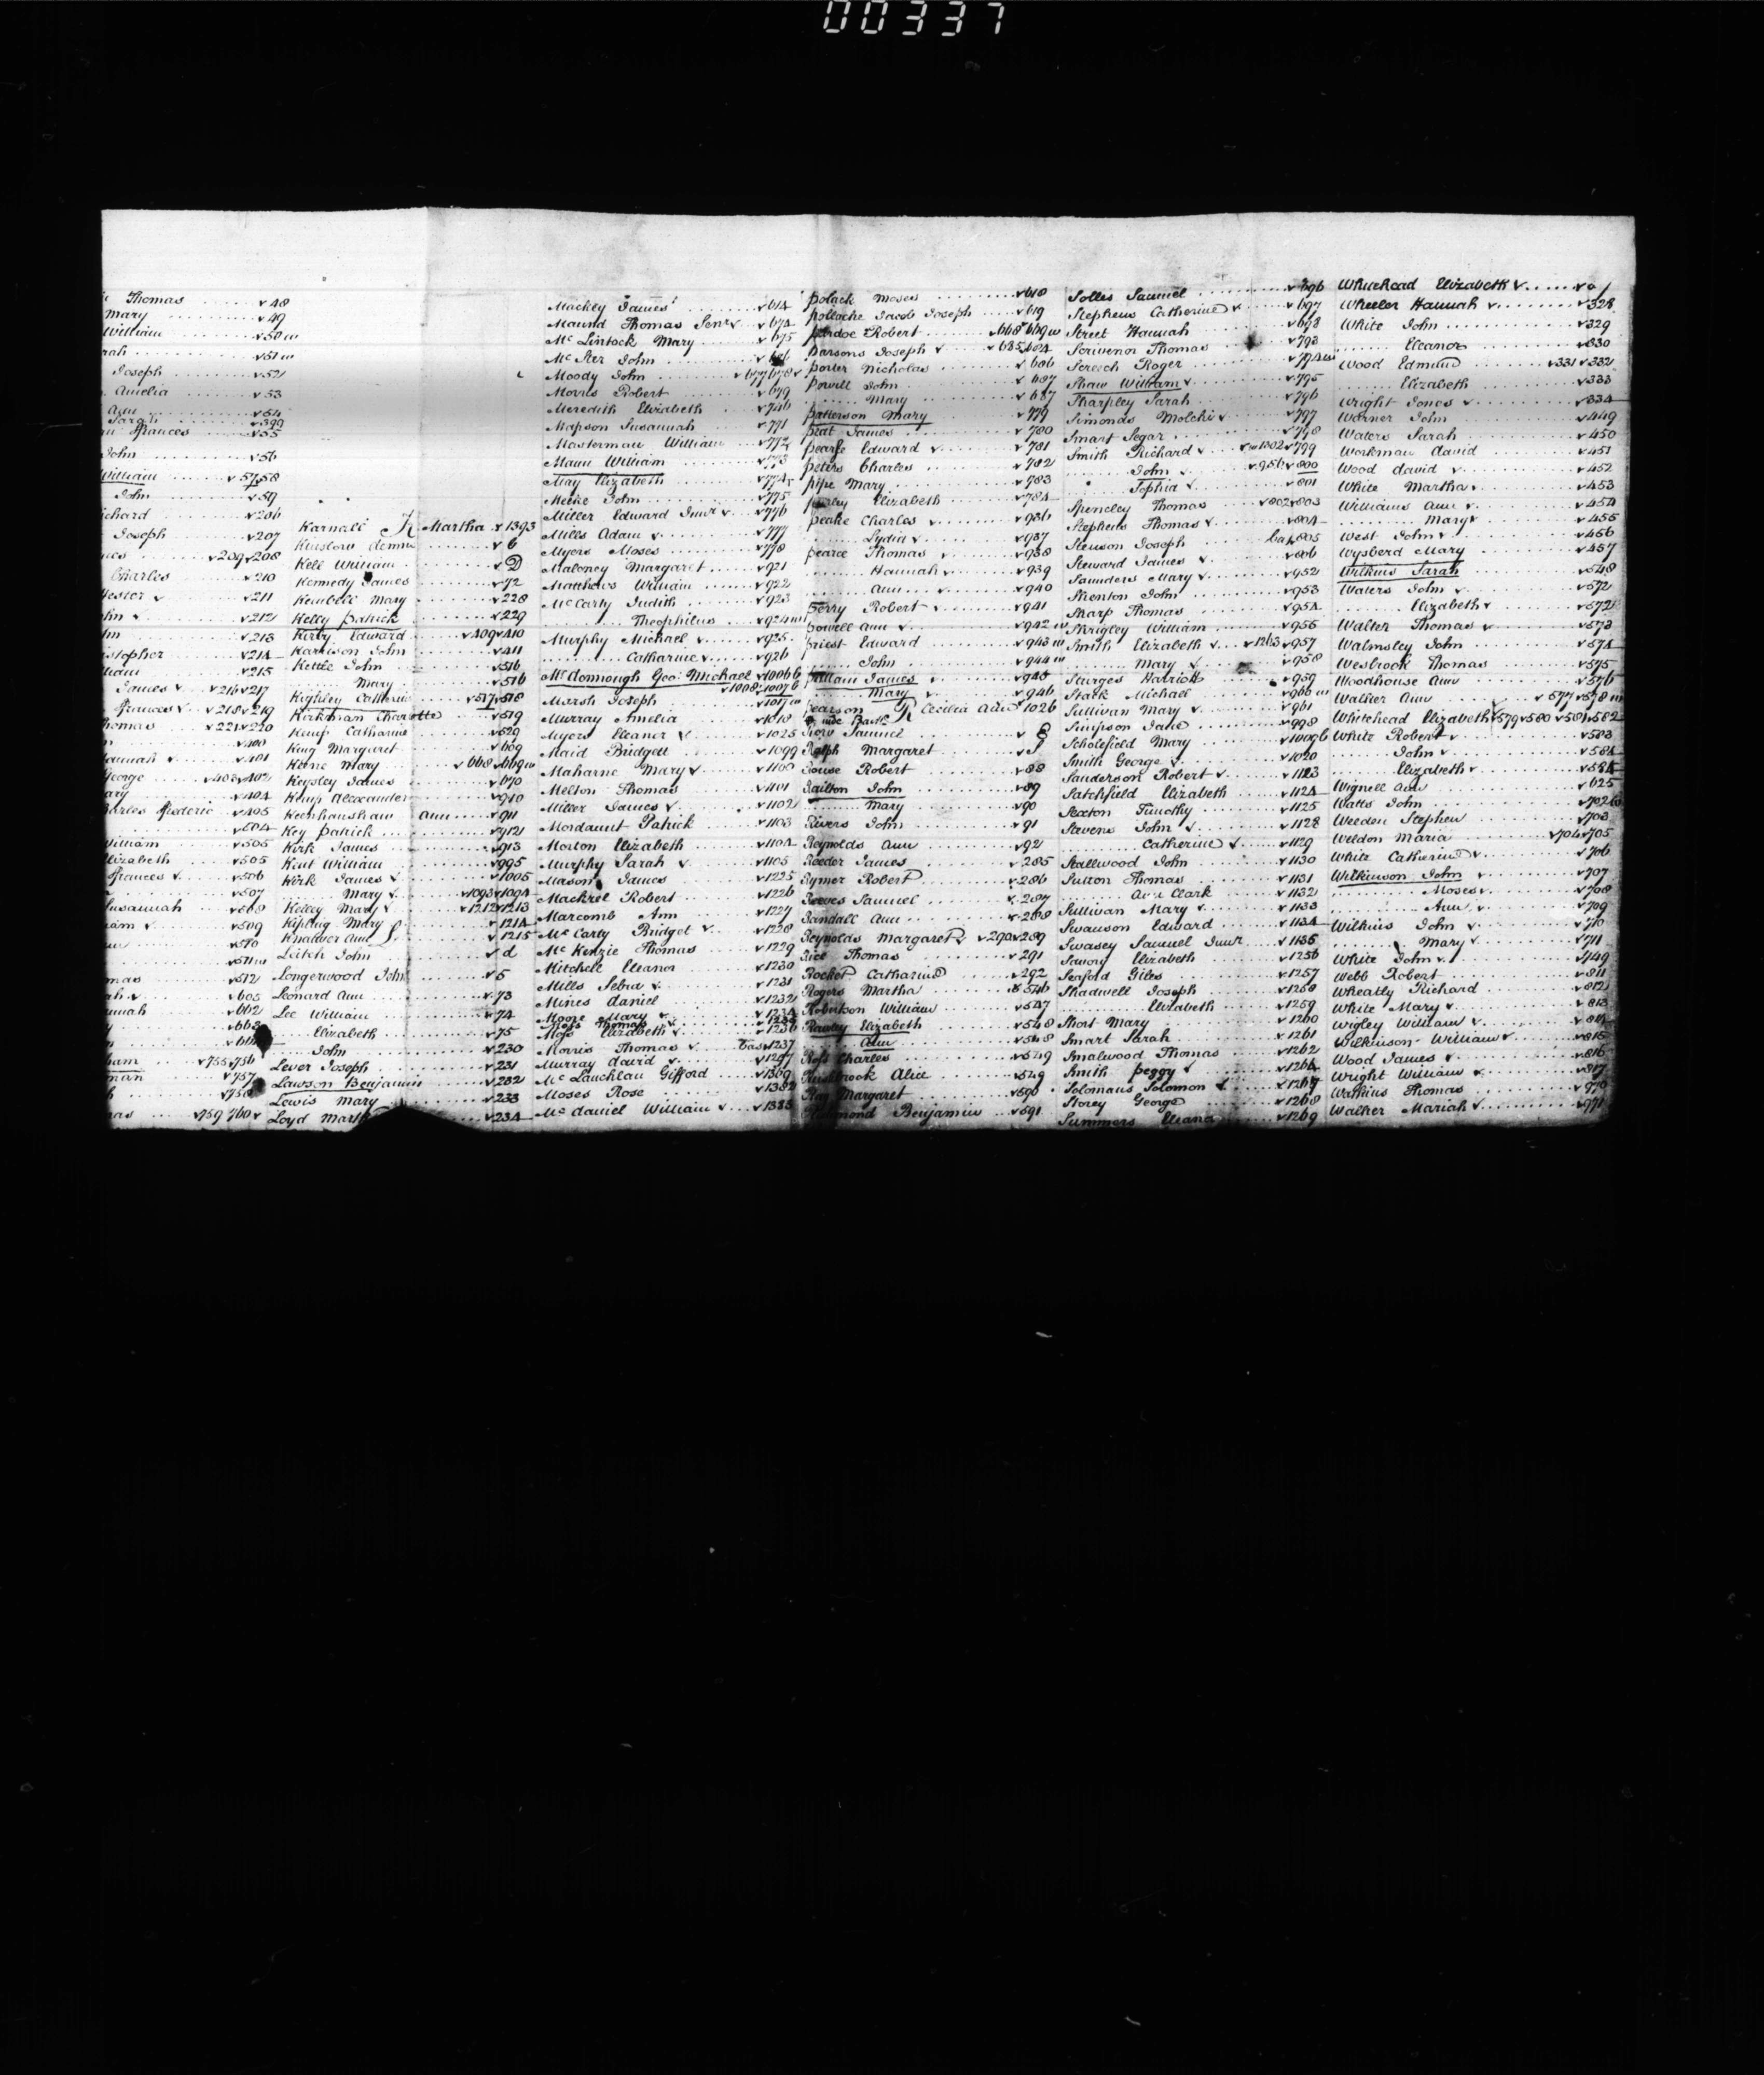 00337
Thomas ...... v 48
Mary ...... v 49
William ...... v 50 m
v 51 m
Joseph ...... v 52
Amelia ...... v 53
Ann ...... v 54
Sarah ...... v 399
Frances ...... v 55
John ...... v 56
William ...... v 57 v 58
John ...... v 59
v 206
Joseph ...... v 207
v 209 v 208
Charles ...... v 210
v 211
v 212
v 213
v 214
v 215
James v ...... v 216 v 217
Frances v ...... v 218 v 219
v 221 v 220
v 400
v 401
George ...... v 403 v 402
v 404
Frederic ...... v 405
v 504
William ...... v 505
Elizabeth ...... v 505
Frances v ...... v 506
v 507
Susannah ...... v 508
v 509
v 510
v 511 m
v 512
v 605
v 662
v 663
v 755 v 756
v 757
v 759 760 v
K
Karnall Martha v 1393
v 6
Kell William ...... v D
Kennedy James ...... v 72
Kembell Mary ...... v 228
Kelly Patrick ...... v 229
Kirby Edward ...... v 409 v 410
Karrison John ...... v 411
Kettle John ...... v 516
...... Mary ...... v 516
Kighley Catherine ...... v 517 v 518
Kirkman Charlotte ...... v 519
Kemp Catharine ...... v 529
King Margaret ...... v 609
Keene Mary ...... v 668 v 669 m
Keysley James ...... v 670
Kemp Alexander ...... v 910
Keenhanshaw Ann ...... v 911
Key Patrick ...... v 912
Kirk James ...... v 913
Kent William ...... v 995
Kirk James v ...... v 1005
...... Mary v ...... v 1093 v 1094
Kelley Mary v ...... v 1212 v 1213
Kipling Mary ...... v 1214
Knower Ann ...... v 1215
L
Leitch John ...... v d
Longerwood John ...... v 5
Leonard Ann ...... v 73
Lee William ...... v 74
...... Elizabeth ...... v 75
...... John ...... v 230
Lever Joseph ...... v 231
Lawson Benjamin ...... v 232
Lewis Mary ...... v 233
Loyd ...... v 234
Mackley James ...... v 614
Maund Thomas Senr v ...... v 674
Mc Lintock Mary ...... v 675
Mc Ster John ...... v 676
Moody John ...... v 677 v 678 v
Morris Robert ...... v 679
Meredith Elizabeth ...... v 746
Mapson Susannah ...... v 771
Masterman William ...... v 772
Mann William ...... v 773
May Elizabeth ...... v 774
Meeke John ...... v 775
Miller Edward Junr v ...... v 776
Mills Adam v ...... v 777
Myers Moses ...... v 778
Maloney Margaret ...... v 921
Matthews William ...... v 922
Mc Carty Judith ...... v 923
...... Theophilus ...... v 924 m
Murphy Michael v ...... v 925
...... Catharine v ...... v 926
Mc Donnough Geo: Michael v 1006 b
v 1008 v 1007 b
Marsh Joseph ...... v 1017 m
Murray Amelia ...... v 1018
Myers Eleaner v ...... v 1025
Maid Bridgett ...... v 1099
Maharne Mary v ...... v 1100
Melton Thomas ...... v 1101
Miller James v ...... v 1102
Mordaunt Patrick ...... v 1103
Morton Elizabeth ...... v 1104
Murphy Sarah v ...... v 1105
Mason James ...... v 1225
Mackrel Robert ...... v 1226
Marcomb Ann ...... v 1227
Mc Carty Bridget v ...... v 1228
Mc Kenzie Thomas ...... v 1229
Mitchell Eleanor ...... v 1230
Mills Sebra v ...... v 1231
Mines Daniel ...... v 1232
Moore Mary v ...... v 1234
Moss Thomas v ...... v 1235
Moss Elizabeth v ...... v 1236
Morris Thomas v ...... v 1237
Murray David v ...... v 1297
Mc Lauchlan Gifford ...... v 1369
Moses Rose ...... v 1382
Mc Daniel William v ...... v 1385
Polack Moses ...... v 618
Polloche Jacob Joseph ...... v 619
Pardoe Robert ...... v 668 v 669 m
Parsons Joseph v ...... v 685 v 684
Porter Nicholas ...... v 686
Powill John ...... v 687
...... Mary ...... v 687
Patterson Mary ...... v 779
Prat James ...... v 780
Pearse Edward v ...... v 781
Peters Charles ...... v 782
Pipe Mary ...... v 783
Elizabeth ...... v 784
Peake Charles v ...... v 936
...... Lydia v ...... v 937
Pearce Thomas v ...... v 938
...... Hannah v ...... v 939
...... Ann v ...... v 940
Perry Robert v ...... v 941
Powell Ann v ...... v 942 m
Priest Edward ...... v 943 m
...... John ...... v 944 m
Pulham James v ...... v 945
...... Mary v ...... v 946
Pearson Cecilia Ann v 1026
R
Samuel ...... v
Ralph Margaret ...... v
Rouse Robert ...... v 88
Railton John ...... v 89
...... Mary ...... v 90
Rivers John ...... v 91
Reynolds Ann ...... v 92
Reeder James ...... v 285
Rymer Robert ...... v 286
Reeves Samuel ...... v 287
Randall Ann ...... v 288
Reynolds Margaret v ...... v 290 v 289
Rice Thomas ...... v 291
Rochet Catharine ...... v 292
Rogers Martha ...... v 546
Robertson William ...... v 547
Elizabeth ...... v 548
...... Ann ...... v 548
Ross Charles ...... v 549
Alice ...... v 549
Ray Margaret ...... v 590
Benjamin ...... v 591
Solles Samuel ...... v 696
Stephens Catherine v ...... v 697
Street Hannah ...... v 698
Scrivenor Thomas ...... v 793
Screech Roger ...... v 794 m
Shaw William v ...... v 795
Sharpley Sarah ...... v 796
Simonds Molchi v ...... v 797
Smart Segar ...... v 798
Smith Richard v ...... v 1302 v 799
...... John v ...... v 956 v 800
...... Sophia v ...... v 801
Spenceley Thomas ...... v 802 v 803
Stephens Thomas v ...... v 804
Stenson Joseph ...... v 805
Steward James v ...... v 806
Saunders Mary v ...... v 952
Shenton John ...... v 953
Sharp Thomas ...... v 954
Shrigley William ...... v 955
Smith Elizabeth v ...... v 1263 v 957
...... Mary v ...... v 958
Sturges Patrick ...... v 959
Stark Michael ...... v 960 m
Sullivan Mary v ...... v 961
Simpson Jane ...... v 998
Scholefield Mary ...... v 1009 b
Smith George v ...... v 1020
Sanderson Robert v ...... v 1123
Satchfield Elizabeth ...... v 1124
Sexton Timothy ...... v 1125
Stevens John v ...... v 1128
...... Catherine v ...... v 1129
Stallwood John ...... v 1130
Sutton Thomas ...... v 1131
...... Ann Clark ...... v 1132
Sullivan Mary v ...... v 1133
Swanson Edward ...... v 1134
Swasey Samuel Junr ...... v 1135
Savory Elizabeth ...... v 1256
Seaford Giles ...... v 1257
Shadwell Joseph ...... v 1258
...... Elizabeth ...... v 1259
Short Mary ...... v 1260
Smart Sarah ...... v 1261
Smalwood Thomas ...... v 1262
Smith Peggy v ...... v 1264
Solomans Solomon v ...... v 1267
Storey George ...... v 1268
Summers Eleanor ...... v 1269
Whitehead Elizabeth v ...... v a 1
Wheeler Hannah v ...... v 328
White John ...... v 329
...... Eleanor ...... v 330
Wood Edmund ...... v 331 v 332
...... Elizabeth ...... v 333
Wright Jones v ...... v 334
Warner John ...... v 449
Waters Sarah ...... v 450
Workman David ...... v 451
Wood David v ...... v 452
White Martha v ...... v 453
Williams Ann v ...... v 454
...... Mary v ...... v 455
West John v ...... v 456
Wysberd Mary ...... v 457
Wilkins Sarah ...... v 548
Waters John v ...... v 572
...... Elizabeth v ...... v 572
Walter Thomas v ...... v 573
Walmsley John ...... v 574
Wesbrook Thomas ...... v 575
Woodhouse Ann ...... v 576
Walker Ann ...... v 577 v 578 m
Whitehead Elizabeth v 579 v 580 v 581 v 582
White Robert v ...... v 583
...... John v ...... v 584
...... Elizabeth v ...... v 584
Wignell Ann ...... v 625
Watts John ...... v 702 b
Weeden Stephen ...... v 703
Weldon Maria ...... v 704 v 705
White Catherine v ...... v 706
Wilkinson John v ...... v 707
...... Moses v ...... v 708
...... Ann v ...... v 709
Wilkins John v ...... v 710
...... Mary v ...... v 711
White John v ...... v 749
Webb Robert ...... v 811
Wheatly Richard ...... v 812
White Mary v ...... v 813
Wigley William v ...... v 814
Wilkinson William v ...... v 815
Wood James v ...... v 816
Wright William v ...... v 817
Watkins Thomas ...... v 970
Walker Mariah v ...... v 971